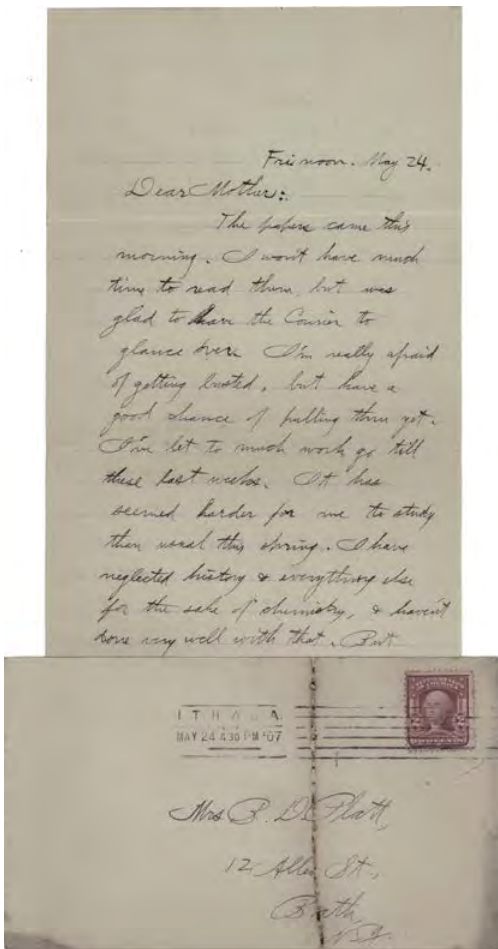 Fri noon. May 24.
Dear Mother:
The papers came this
morning. I won't have much
time to read them, but was
glad to have the Courier to
glance over. I'm really afraid
of getting busted, but have a
good chance of pulling thru yet.
I've let to much work go till
these last weeks. It has
seemed harder for me to study
than usual this spring. I have
neglected history & everything else
for the sake of chemistry, & haven't
done very well with that. But
ITHACA
MAY 24 4 30 PM '07
Mrs B. D. Platt,
12 Allen St.,
Bath,
N.Y.